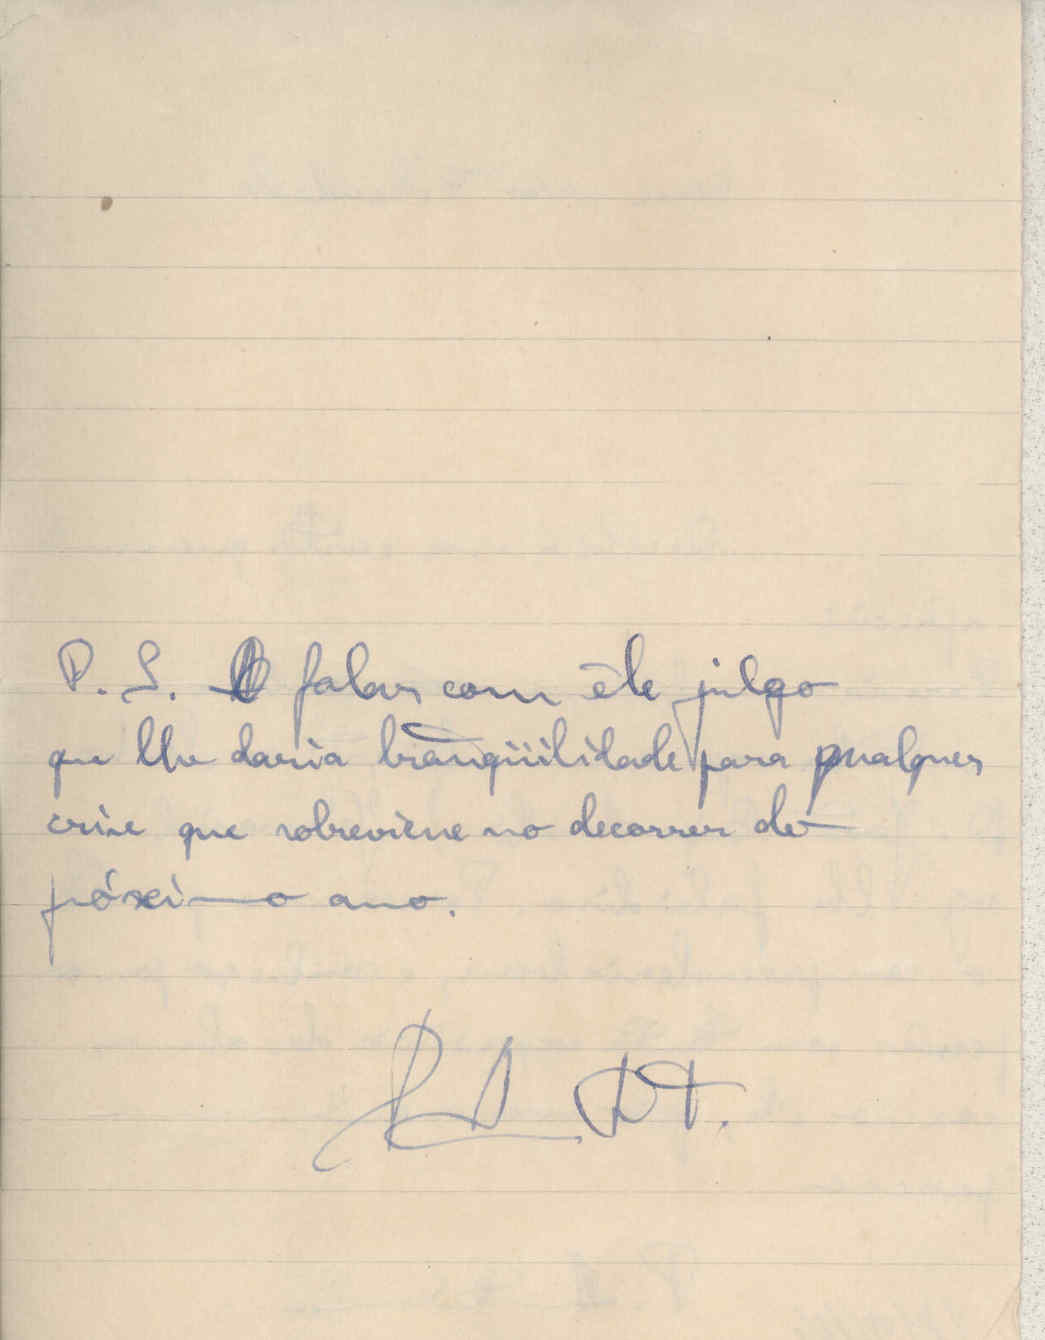 P. S. O falar com êle julgo
que lhe daria tranqüilidade para qualquer
crise que sobreviesse no decorrer do
próximo ano.